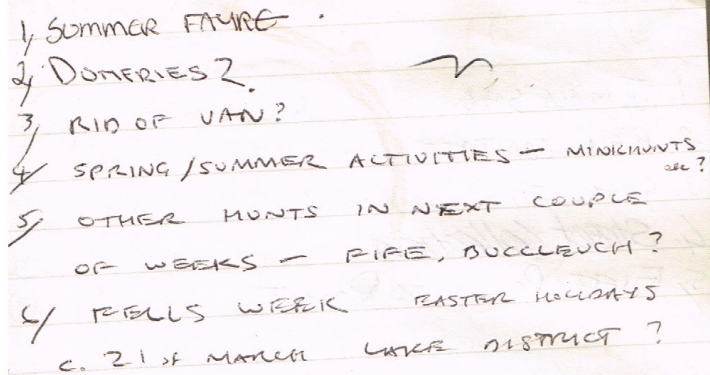 1, SUMMER FAYRE.
2, DUMFRIES?
3, RID OF VAN?
4, SPRING/SUMMER ACTIVITIES – MINKHUNTS
etc?
5, OTHER HUNTS IN NEXT COUPLE
OF WEEKS – FIFE, BUCCLEUCH?
6, FELLS WEEK EASTER HOLIDAYS
c. 21st MARCH LAKE DISTRICT?